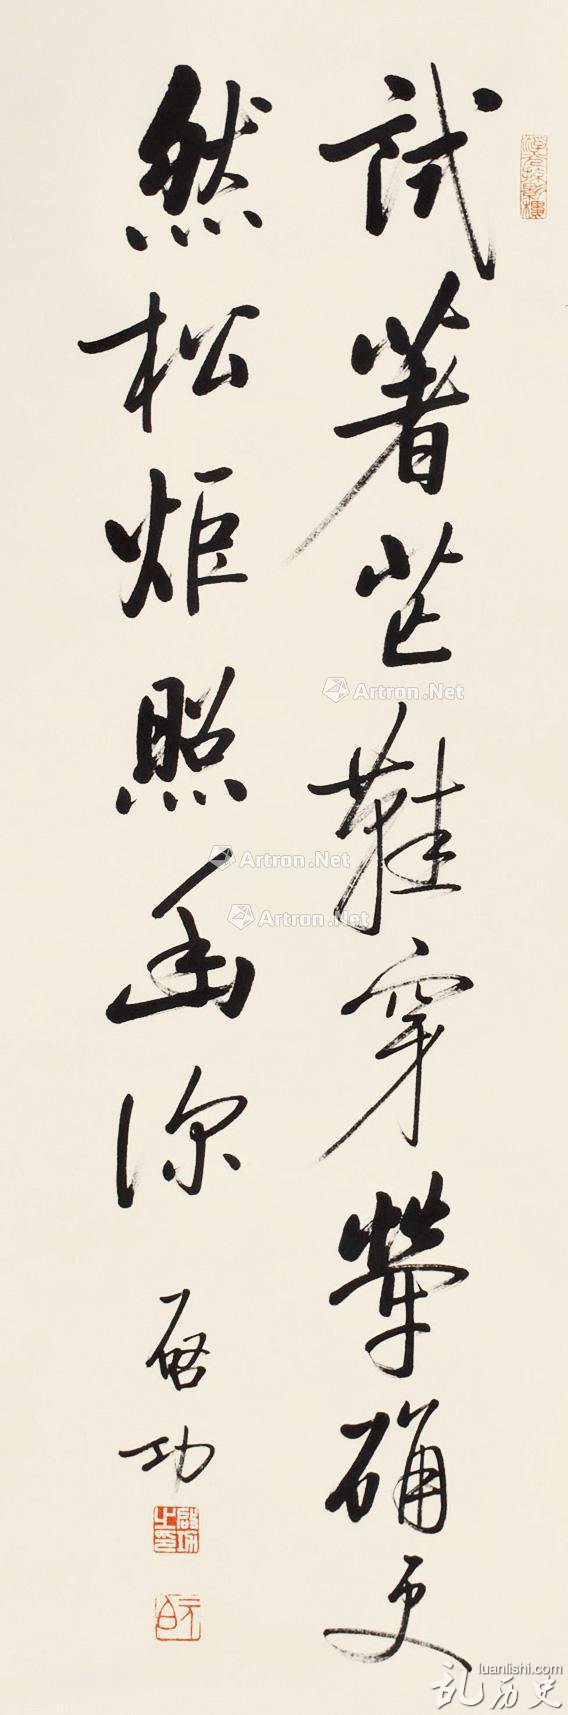 试著芒鞋穿荦确更
然松炬照幽深
启功
启功之印
元白
Artron.Net
Artron.Net
Artron.Net
luanlishi.com
乱历史